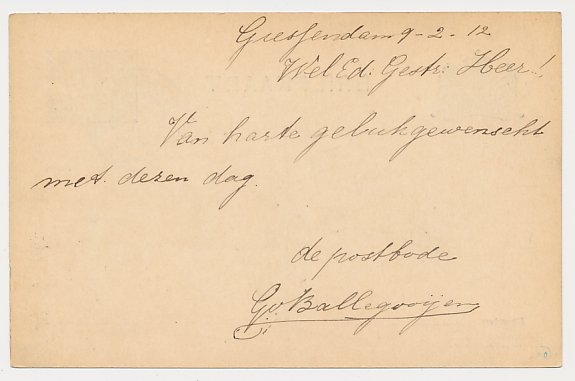 Giessendam 9-2-12
Wel Ed. Gestr. Heer!
Van harte gelukgewenscht
met dezen dag.
de postbode
G. v. Ballegooijen